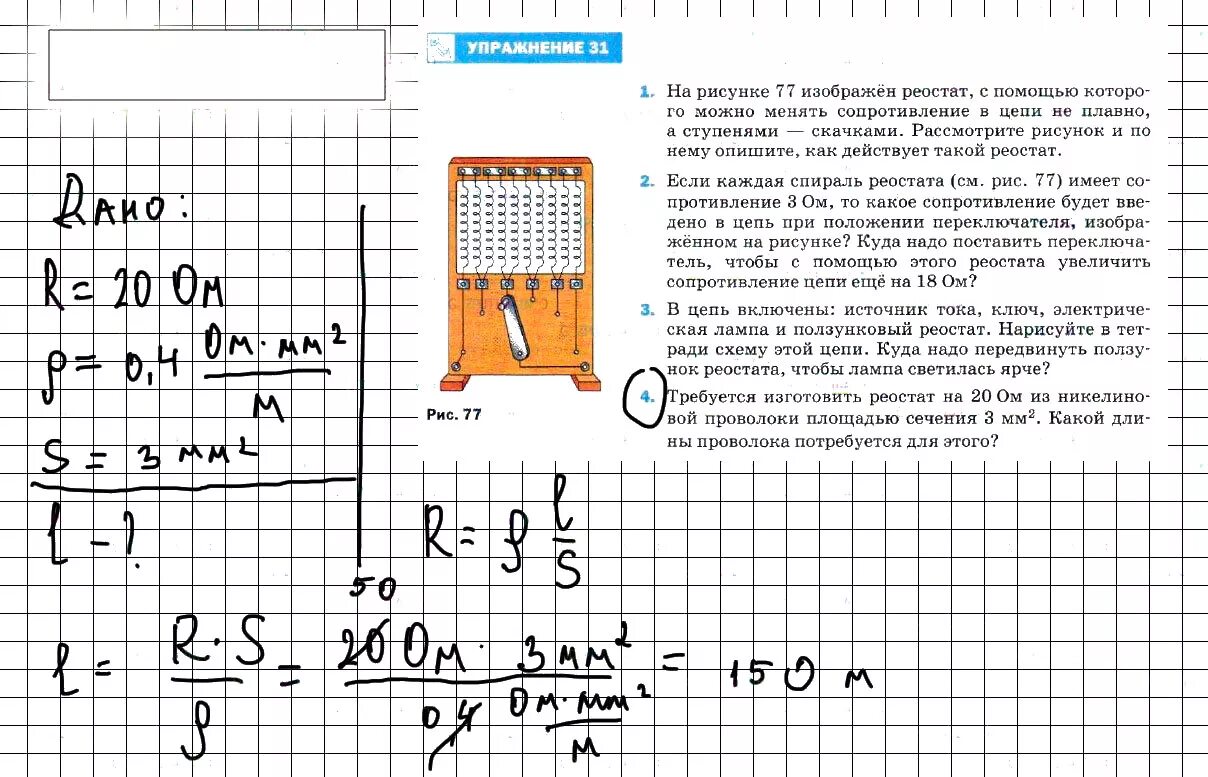 УПРАЖНЕНИЕ 31
1. На рисунке 77 изображён реостат, с помощью которо-
го можно менять сопротивление в цепи не плавно,
а ступенями — скачками. Рассмотрите рисунок и по
нему опишите, как действует такой реостат.
2. Если каждая спираль реостата (см. рис. 77) имеет со-
противление 3 Ом, то какое сопротивление будет вве-
дено в цепь при положении переключателя, изобра-
жённом на рисунке? Куда надо поставить переключа-
тель, чтобы с помощью этого реостата увеличить
сопротивление цепи ещё на 18 Ом?
3. В цепь включены: источник тока, ключ, электриче-
ская лампа и ползунковый реостат. Нарисуйте в тет-
ради схему этой цепи. Куда надо передвинуть ползу-
нок реостата, чтобы лампа светилась ярче?
4. Требуется изготовить реостат на 20 Ом из никелино-
вой проволоки площадью сечения 3 мм². Какой дли-
ны проволока потребуется для этого?
Рис. 77
Дано:
R = 20 Ом
ρ = 0,4 Ом·мм²/м
S = 3 мм²
l - ?
R = ρ l/S
50
l = R·S/ρ = 20 Ом · 3 мм² / 0,4 Ом·мм²/м = 150 м